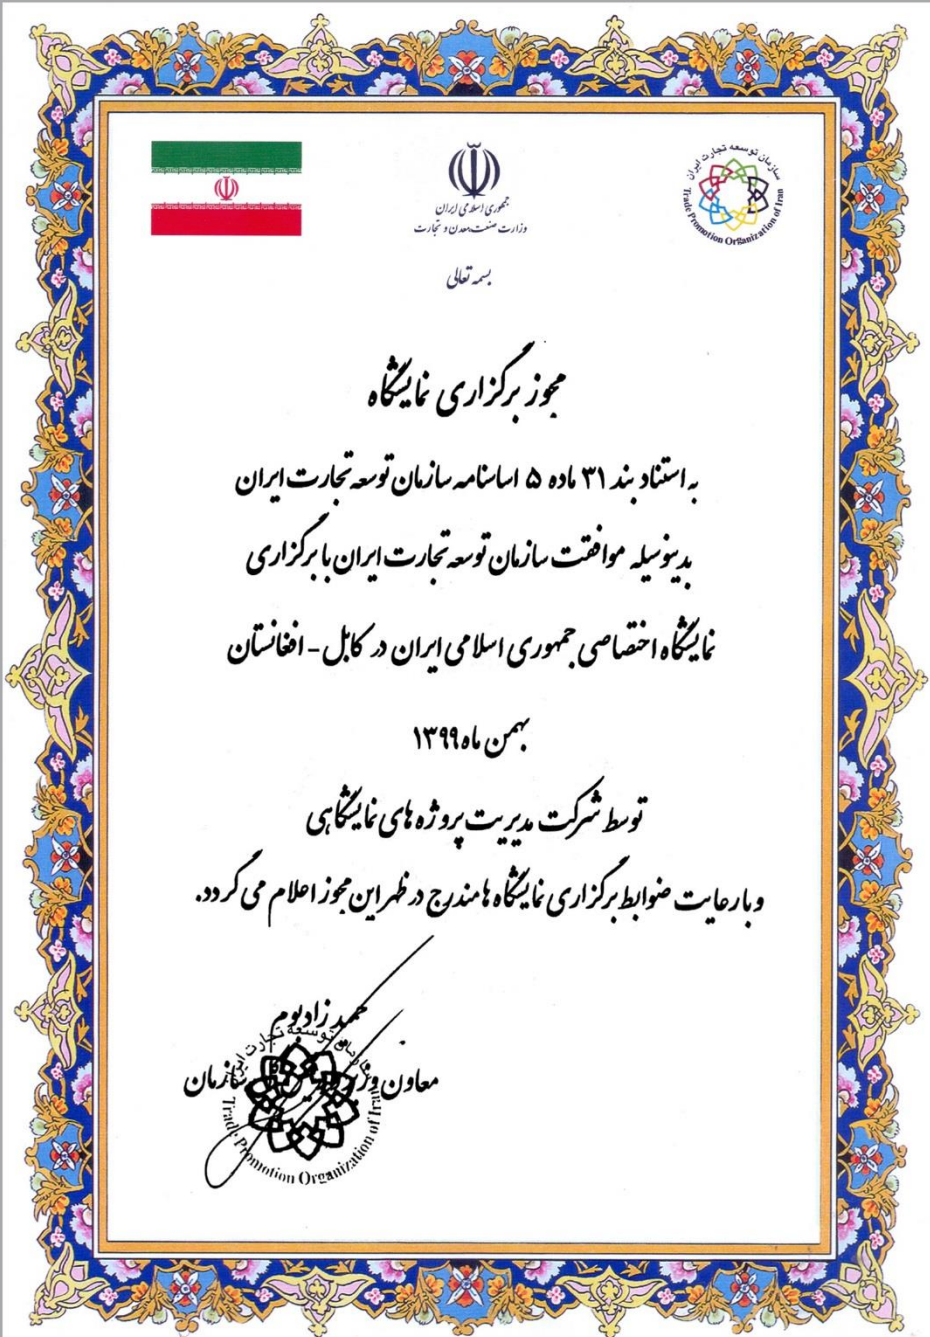 سازمان توسعه تجارت ایران
Trade Promotion Organization of Iran
جمهوری اسلامی ایران
وزارت صنعت، معدن و تجارت
بسمه تعالی
مجوز برگزاری نمایشگاه
به استناد بند ۳۱ ماده ۵ اساسنامه سازمان توسعه تجارت ایران
بدینوسیله موافقت سازمان توسعه تجارت ایران با برگزاری
نمایشگاه اختصاصی جمهوری اسلامی ایران در کابل - افغانستان
بهمن ماه ۱۳۹۹
توسط شرکت مدیریت پروژه های نمایشگاهی
و با رعایت ضوابط برگزاری نمایشگاه ها مندرج در ظهر این مجوز اعلام می گردد.
حمید زادبوم
معاون وزیر سازمان
سازمان توسعه تجارت ایران
Trade Promotion Organization of Iran